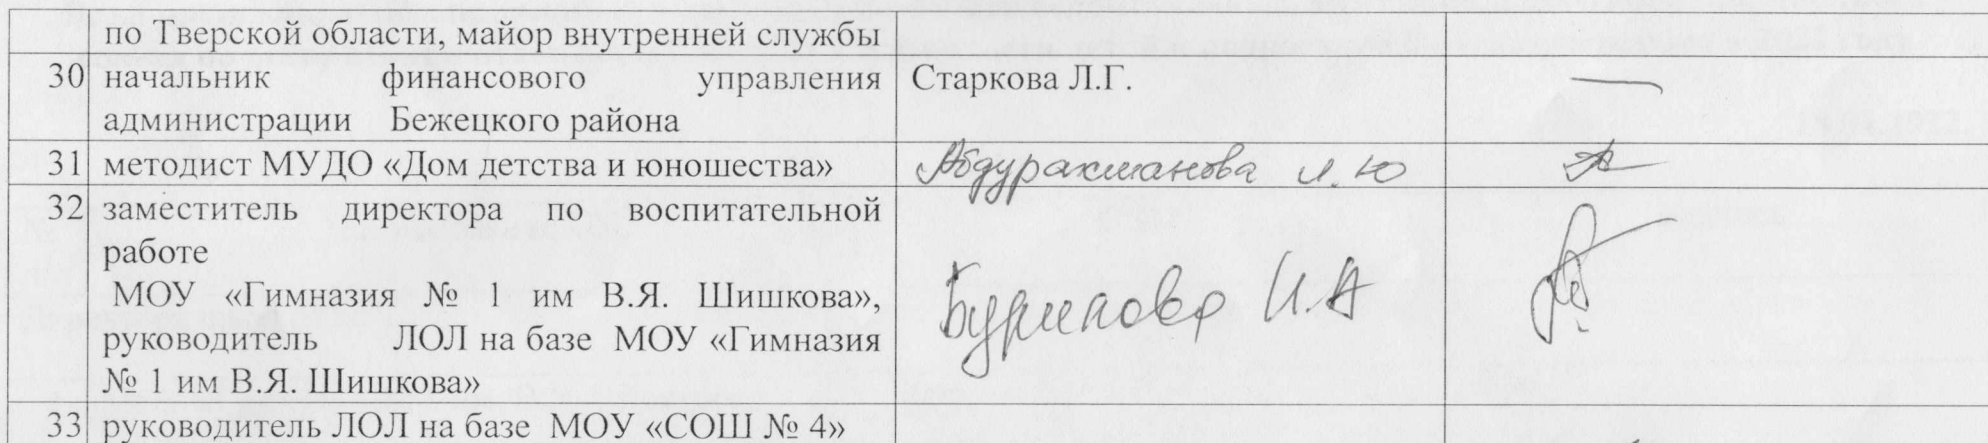 по Тверской области, майор внутренней службы
30 начальник финансового управления Старкова Л.Г.
администрации Бежецкого района
31 методист МУДО «Дом детства и юношества» Абдурахманова Л.Ю
32 заместитель директора по воспитательной
работе
МОУ «Гимназия № 1 им В.Я. Шишкова», И.А
руководитель ЛОЛ на базе МОУ «Гимназия
№ 1 им В.Я. Шишкова»
33 руководитель ЛОЛ на базе МОУ «СОШ № 4»